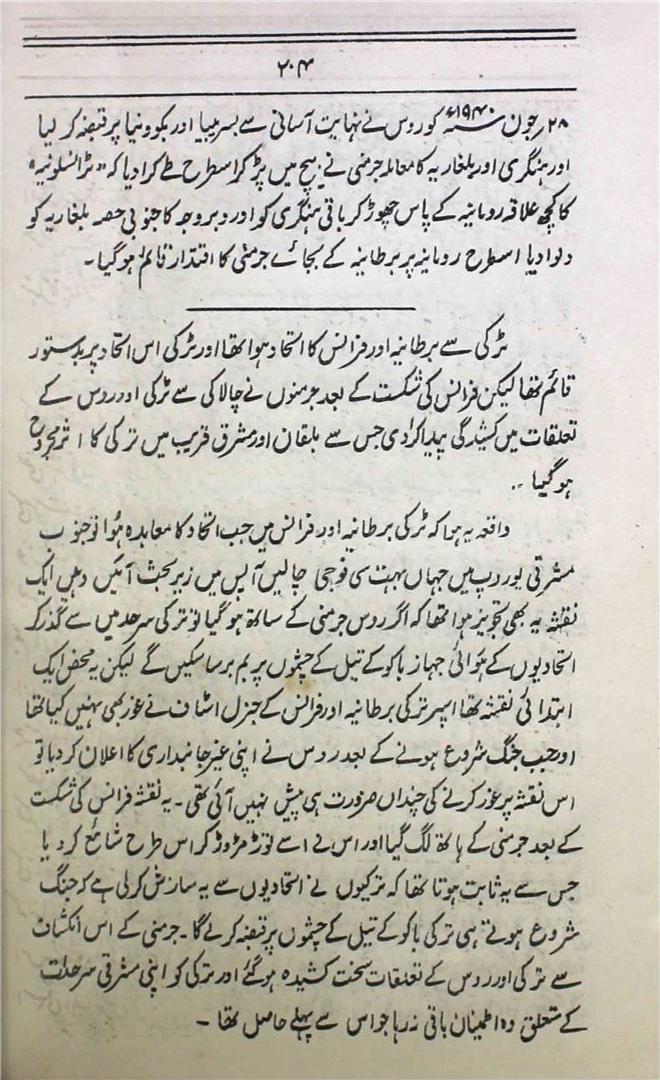 ۲۰۴
۲۸ رجون سنہ ۱۹۴۰ء کو روس نے نہایت آسانی سے بسربیا اور بکووینا پر قبضہ کر لیا
اور ہنگری اور بلغاریہ کا معاملہ جرمنی نے بیچ میں پڑ کر اسطرح طے کرا دیا کہ "ٹرانسلونیہ"
کا کچھ علاقہ رومانیہ کے پاس چھوڑ کر باقی ہنگری کو اور دبروجہ کا جنوبی حصہ بلغاریہ کو
دلوا دیا اسطرح رومانیہ پر برطانیہ کے بجائے جرمنی کا اقتدار قائم ہو گیا۔
ٹرکی سے برطانیہ اور فرانس کا اتحاد ہوا تھا اور ٹرکی اس اتحاد پر بدستور
قائم تھا لیکن فرانس کی شکست کے بعد جرمنوں نے چالاکی سے ٹرکی اور روس کے
تعلقات میں کشیدگی پیدا کرا دی جس سے بلقان اور مشرق قریب میں ترکی کا اثر مجروح
ہو گیا ۔۔
واقعہ یہ ہوا کہ ٹرکی برطانیہ اور فرانس میں جب اتحاد کا معاہدہ ہُوا تو جنوب
مشرقی یوروپ میں جہاں بہت سی فوجی چالیں آپس میں زیر بحث آئیں وہیں ایک
نقشہ یہ بھی تجویز ہوا تھا کہ اگر روس جرمنی کے ساتھ ہو گیا تو ترکی سرحد میں سے گذر کر
اتحادیوں کے ہوائی جہاز باکو کے تیل کے چشموں پر بم برسا سکیں گے لیکن یہ محض ایک
ابتدائی نقشہ تھا اسپر ترکی برطانیہ اور فرانس کے جنرل اسٹاف نے غور بھی نہیں کیا تھا
اور جب جنگ شروع ہونے کے بعد روس نے اپنی غیر جانبداری کا اعلان کر دیا تو
اس نقشہ پر غور کرنے کی چنداں ضرورت ہی پیش نہیں آئی تھی۔ یہ نقشہ فرانس کی شکست
کے بعد جرمنی کے ہاتھ لگ گیا اور اس نے اسے توڑ مڑوڑ کر اس طرح شائع کر دیا
جس سے یہ ثابت ہوتا تھا کہ ترکیوں نے اتحادیوں سے یہ سازش کر لی ہے کہ جنگ
شروع ہوتے ہی ترکی باکو کے تیل کے چشموں پر قبضہ کر لے گا۔ جرمنی کے اس انکشاف
سے ترکی اور روس کے تعلقات سخت کشیدہ ہو گئے اور ترکی کو اپنی مشرقی سرحدات
کے متعلق وہ اطمینان باقی نہ رہا جو اس سے پہلے حاصل تھا ۔